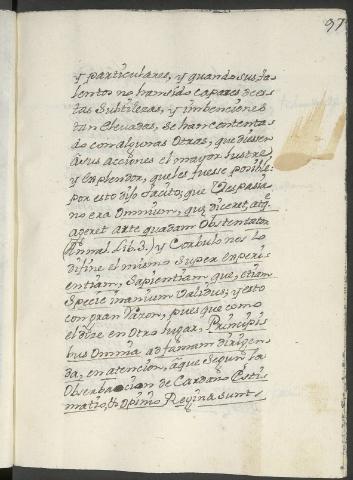 97
y particulares, y quando sus ta-
lentos no han sido capaces de es-
tas Subtilezas, y imbenciones
tan Elevadas, se han contenta-
do con algunas Otras, que diessen
à sus acciones el mayor lustre
y Esplendor, que les fuesse posible:
por esto dijo Tacito; que Vespasia
no era Omnium, quæ diceret, atq.
ageret arte quadam Obstentator
Annal. Lib. 3.) y Corbulo nes lo
difine el mismo Super Experi-
entiam, Sapientiam que, etiam
Specie inanium Validus; y esto
con gran Viron, pues que como
el dize en Otro lugar, Principi-
bus Omnia ad famam dirigen-
da, en atencion, à que segun la
Observacion de Cardano Esti-
matio, & opinio Regina sunt